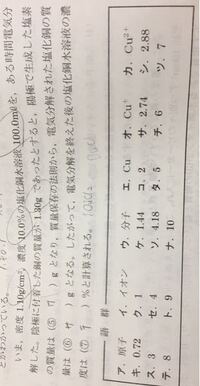 とがわかっている。
いま，密度 1.10g/cm³，濃度 10.0%の塩化銅水溶液 100.0mLを，ある時間電気分
解した。陰極に付着した銅の質量が 1.30g であったとすると，陽極で生成した塩素
の質量は（⑤ ）gとなり，質量保存の法則から，電気分解された塩化銅の質
量は（⑥ ）gとなる。したがって，電気分解を終えた後の塩化銅水溶液の濃
度は（⑦ ）%と計算される。
語 群
ア．原子 イ．イオン ウ．分子 エ．Cu オ．Cu⁺ カ．Cu²⁺
キ．0.72 ク．1 ケ．1.44 コ．2 サ．2.74 シ．2.88
ス．3 セ．4 ソ．4.18 タ．5 チ．6 ツ．7
テ．8 ト．9 ナ．10